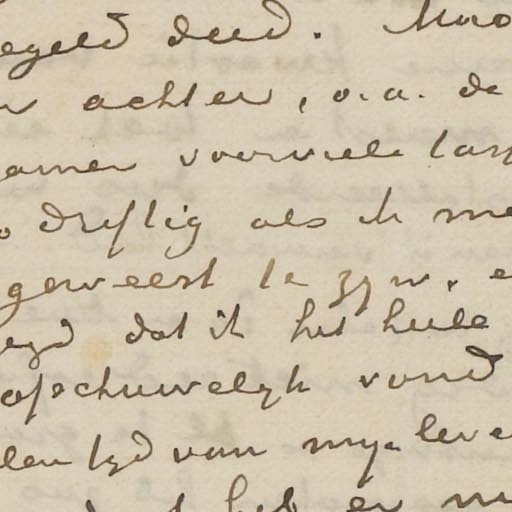 egeld deed. Maa
achter, o.a. de
voorviel las
driftig als ik me
geweest te zyn, e
egd dat ik het heele
afschuwelyk vond
tyd van myn leve
heb er